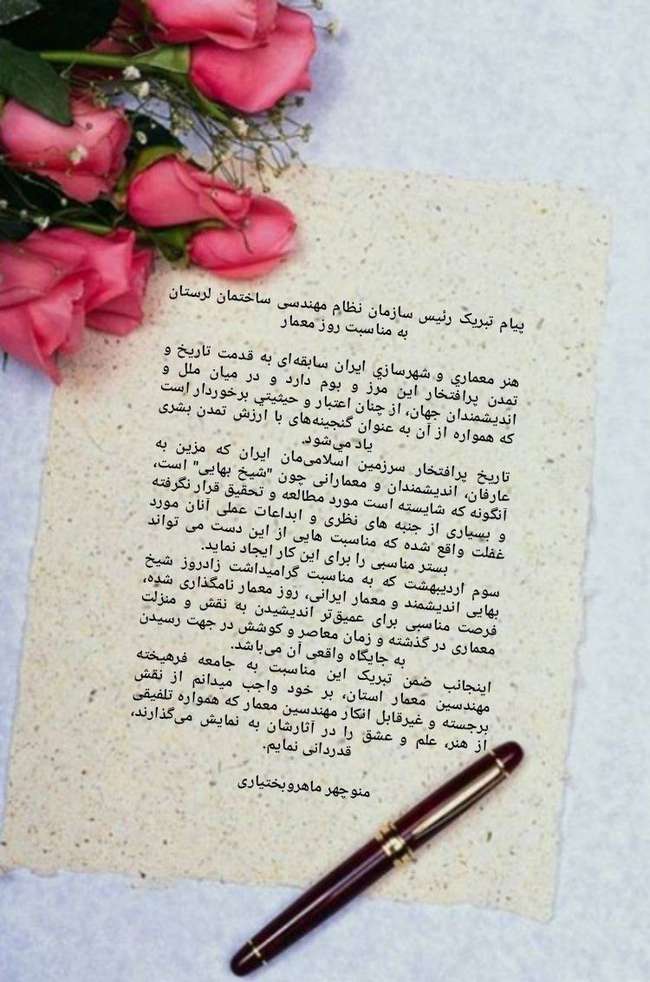 پیام تبریک رئیس سازمان نظام مهندسی ساختمان لرستان
به مناسبت روز معمار
هنر معماري و شهرسازي ایران سابقه‌ای به قدمت تاریخ و
تمدن پرافتخار این مرز و بوم دارد و در میان ملل و
اندیشمندان جهان، از چنان اعتبار و حیثیتي برخوردار است
که همواره از آن به عنوان گنجینه‌های با ارزش تمدن بشری
یاد می‌شود.
تاریخ پرافتخار سرزمین اسلامی‌مان ایران که مزین به
عارفان، اندیشمندان و معمارانی چون "شیخ بهایی" است،
آنگونه که شایسته است مورد مطالعه و تحقیق قرار نگرفته
و بسیاری از جنبه های نظری و ابداعات عملی آنان مورد
غفلت واقع شده که مناسبت هایی از این دست می تواند
بستر مناسبی را برای این کار ایجاد نماید.
سوم اردیبهشت که به مناسبت گرامیداشت زادروز شیخ
بهایی اندیشمند و معمار ایرانی، روز معمار نامگذاری شده،
فرصت مناسبی برای عمیق‌تر اندیشیدن به نقش و منزلت
معماری در گذشته و زمان معاصر و کوشش در جهت رسیدن
به جایگاه واقعی آن می‌باشد.
اینجانب ضمن تبریک این مناسبت به جامعه فرهیخته
مهندسین معمار استان، بر خود واجب میدانم از نقش
برجسته و غیرقابل انکار مهندسین معمار که همواره تلفیقی
از هنر، علم و عشق را در آثارشان به نمایش می‌گذارند،
قدردانی نمایم.
منوچهر ماهروبختیاری